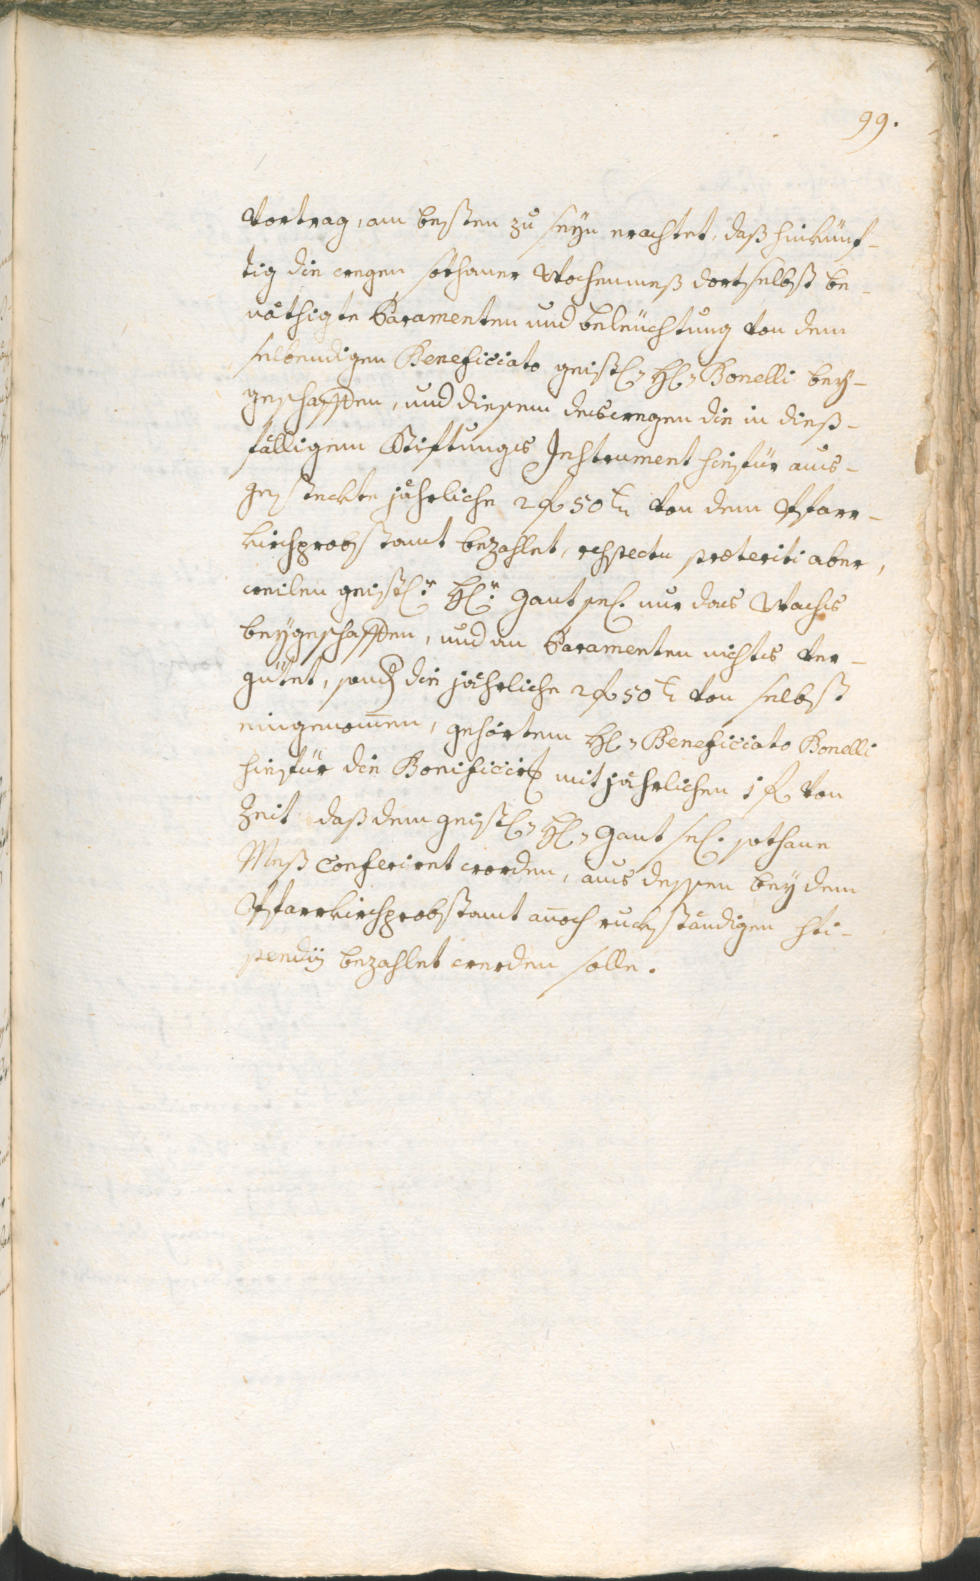 99.
Vortrag, am besten zu seyn erachtet, daß hinkünf-
tig die wegen sothaner Wochenmeß dortselbst be-
nöthigte Paramenten und beleüchtung von dem
selbendigen Beneficiato geistl: H: Bonelli bey-
geschaffen, und diesem deswegen die in dieß-
fälligem Stiftungs Instrument hiefür aus-
gesteckte jährliche 2 f 50 kr von dem Pfarr-
kirchprobstamt bezahlet, respectu præteriti aber,
weilen geistl: H: Gant sel. nur das Wachs
beygeschaffen, und an Paramenten nichts ver-
gütet, sond die jährliche 2 f 50 kr von selbst
eingenom̄en, gehörtem H: Beneficiato Bonelli
hiefür die Bonificirg mit jährlichen 1 f von
Zeit daß dem geistl: H: Gant sel. sothane
Meß Conferiret worden, aus dessen bey dem
Pfarrkirchprobstamt an̄och ruckständigen sti-
pendÿ bezahlet werden solle.